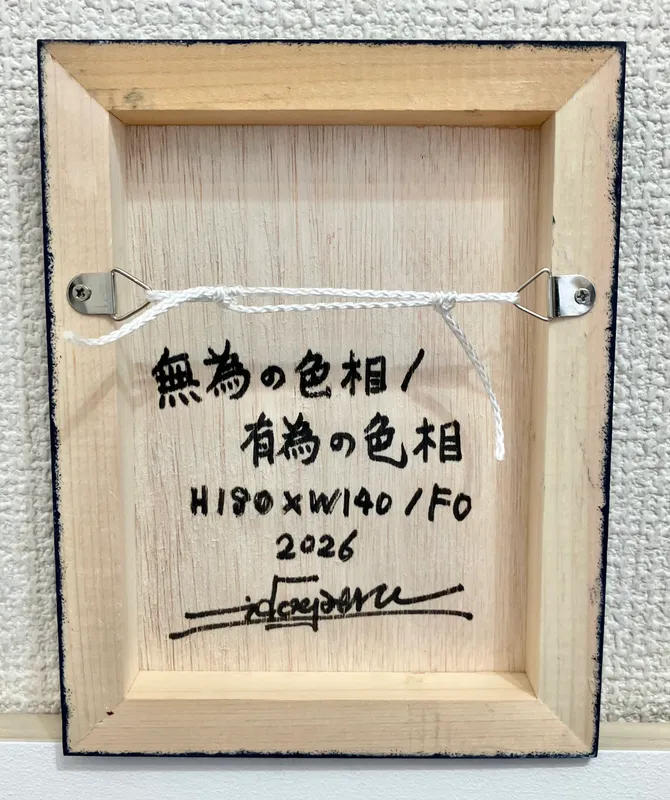 無為の色相/
有為の色相
H180×W140/F0
2026